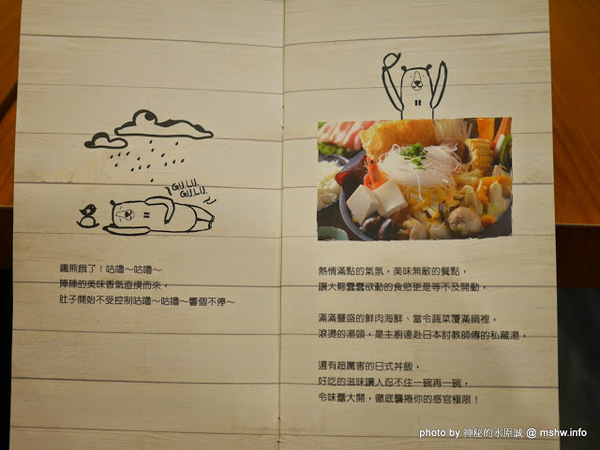 GULU
GULU
鐵熊餓了！咕嚕～咕嚕～
陣陣的美味香氣直撲而來，
肚子開始不受控制咕嚕～咕嚕～響個不停～
熱情滿點的氣氛，美味無敵的餐點，
讓大夥蠢蠢欲動的食慾更是等不及開動，
滿滿豐盛的鮮肉海鮮、當令蔬菜覆滿鍋裡，
滾燙的湯頭，是主廚遠赴日本討教師傅的私藏湯，
還有超厲害的日式丼飯，
好吃的滋味讓人忍不住一碗再一碗，
令味蕾大開，徹底襲捲你的感官極限！
photo by 神秘的水原誠 @ mshw.info